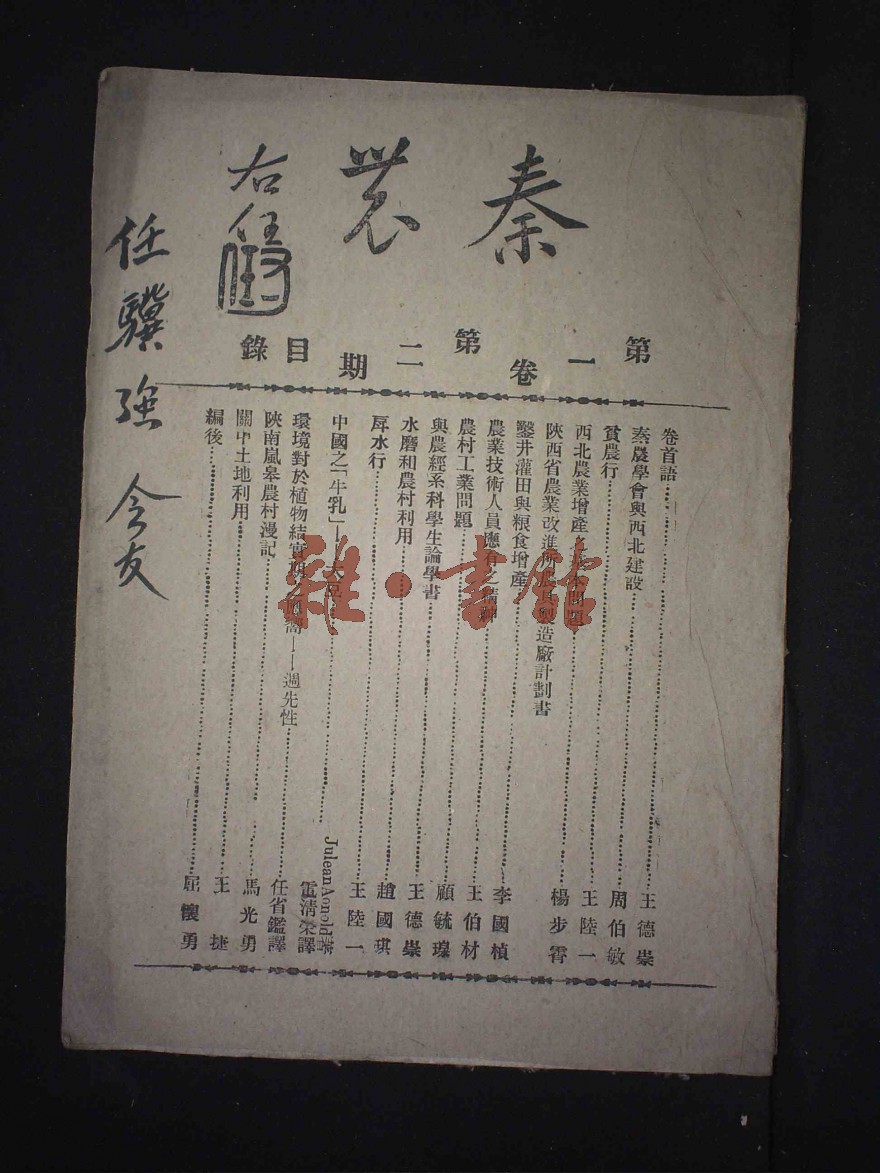 秦農
右任
第一卷第二期目錄
卷首語
秦農學會與西北建設 王德崇
貧農行 周伯敏
西北農業增產之基本問題 王陸一
陝西省農業改進所農具製造廠計劃書 楊步霄
鑿井灌田與粮食增產
農業技術人員應有之精神 李國楨
農村工業問題 王伯材
與農經系科學生論學書 顧毓瑔
水磨和農村利用 王德崇
戽水行 趙國琪
中國之「牛乳」——大豆 王陸一
Julean Arnold著
雷清榮譯
環境對於植物結實期之影響——週先性 任省鑑譯
陝南嵐皋農村漫記 馬光勇
關中土地利用 王捷
編後 屈懷勇
任驥強會友
雜·書館